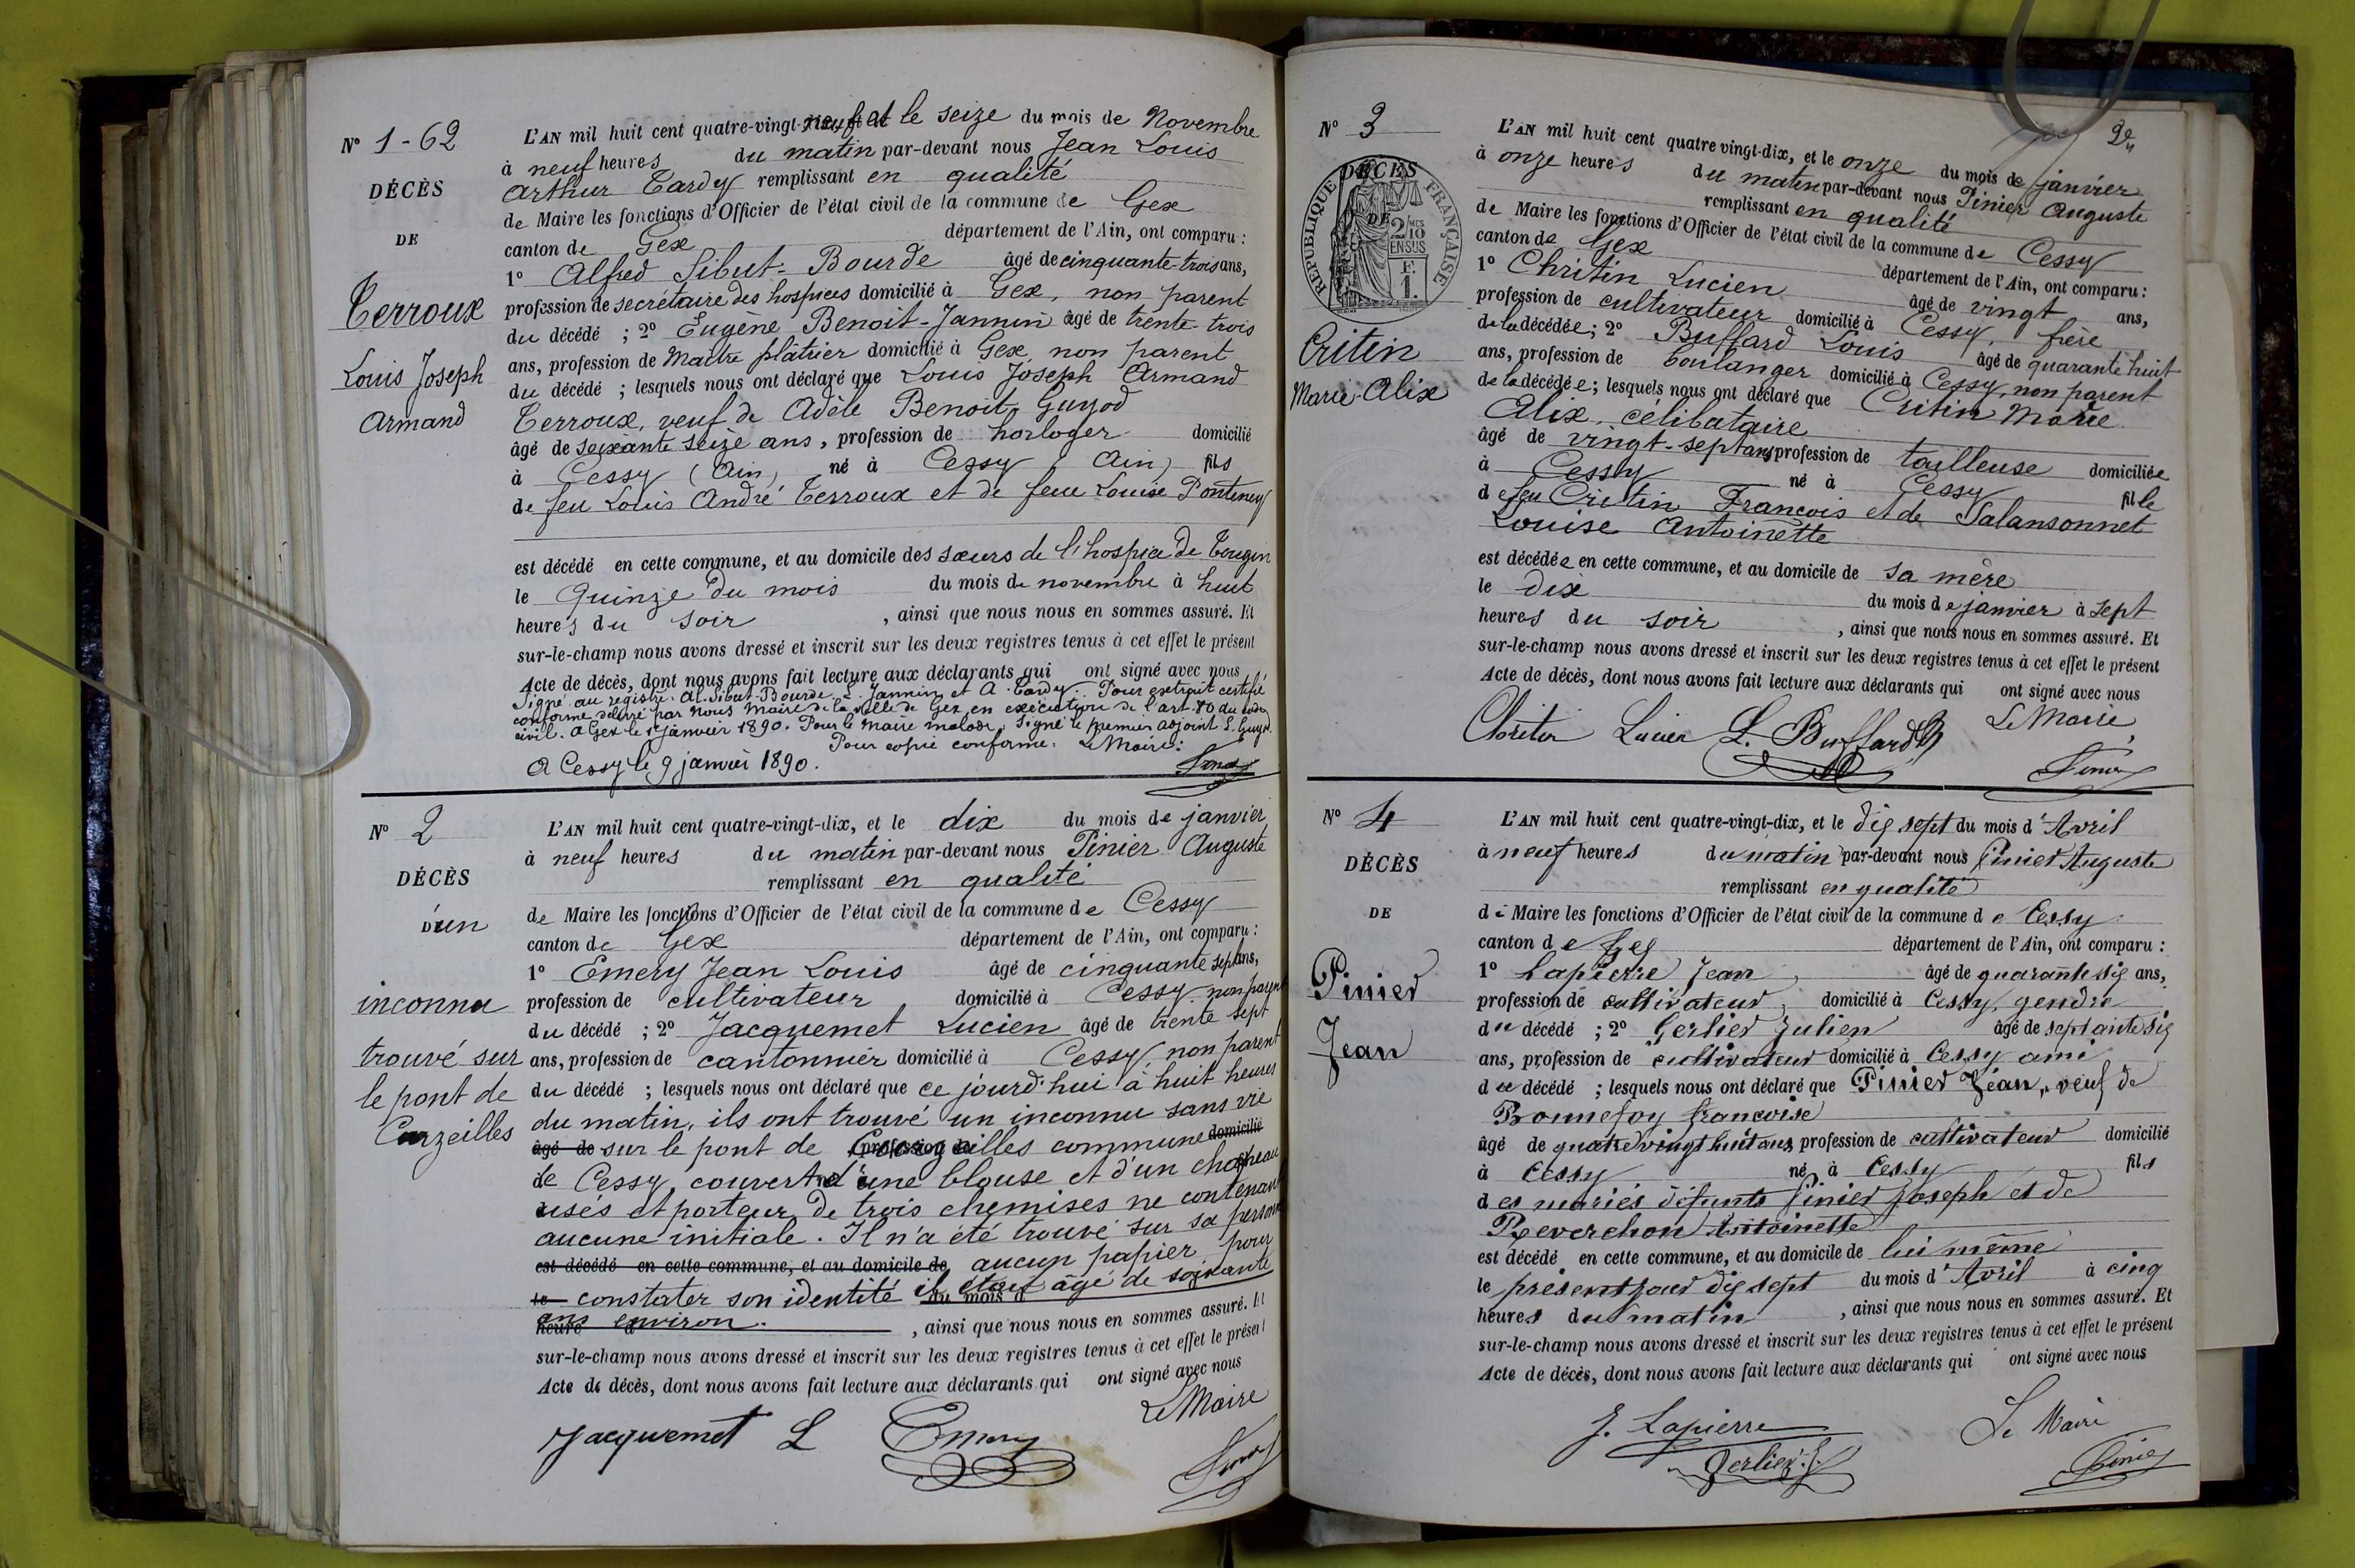 N° 1-62
DÉCÈS
DE
Terroux
Louis Joseph
Armand
L'AN mil huit cent quatre-vingt-neuf et le seize du mois de Novembre
à neuf heures du matin par-devant nous Jean Louis
Arthur Tardy remplissant en qualité
de Maire les fonctions d'Officier de l'état civil de la commune de Gex
canton de Gex département de l'Ain, ont comparu :
1° Alfred Sibut-Bourde âgé de cinquante-trois ans,
profession de secrétaire des hospices domicilié à Gex, non parent
du décédé ; 2° Eugène Benoit-Jannin âgé de trente-trois
ans, profession de Maître plâtrier domicilié à Gex, non parent
du décédé ; lesquels nous ont déclaré que Louis Joseph Armand
Terroux, veuf de Adèle Benoit Guyod
âgé de soixante seize ans, profession de horloger domicilié
à Cessy (Ain) né à Cessy (Ain) fils
de feu Louis André Terroux et de feue Louise Ponteney
est décédé en cette commune, et au domicile des sœurs de l'hospice de Tougin
le Quinze du mois du mois de novembre à huit
heures du soir , ainsi que nous nous en sommes assuré. Et
sur-le-champ nous avons dressé et inscrit sur les deux registres tenus à cet effet le présent
Acte de décès, dont nous avons fait lecture aux déclarants qui ont signé avec nous
Signé au registre: Al. Sibut-Bourde, E. Jannin et A. Tardy. Pour extrait certifié
conforme délivré par Nous Maire de la ville de Gex en exécution de l'art. 80 du code
civil. A Gex le 1 janvier 1890. Pour le Maire malade, Signé le premier adjoint L. Guyod.
Pour copie conforme: Le Maire:
A Cessy le 9 janvier 1890.
Pinier
N° 2
DÉCÈS
D'un
inconnu
trouvé sur
le pont de
Curzeilles
L'AN mil huit cent quatre-vingt-dix, et le dix du mois de janvier
à neuf heures du matin par-devant nous Pinier Auguste
remplissant en qualité
de Maire les fonctions d'Officier de l'état civil de la commune de Cessy
canton de Gex département de l'Ain, ont comparu :
1° Emery Jean Louis âgé de cinquante sept ans,
profession de cultivateur domicilié à Cessy non parent
du décédé ; 2° Jacquemet Lucien âgé de trente sept
ans, profession de cantonnier domicilié à Cessy, non parent
du décédé ; lesquels nous ont déclaré que ce jourd'hui à huit heures
du matin, ils ont trouvé un inconnu sans vie
âgé de sur le pont de Curzeilles commune domicilié
de Cessy, couvert d'une blouse et d'un chapeau
usés et porteur de trois chemises ne contenant
aucune initiale. Il n'a été trouvé sur sa personne
est décédé en cette commune, et au domicile de aucun papier pour
le constater son identité il était âgé de soixante du mois d
ans environ. heure d , ainsi que nous nous en sommes assuré. Et
sur-le-champ nous avons dressé et inscrit sur les deux registres tenus à cet effet le présent
Acte de décès, dont nous avons fait lecture aux déclarants qui ont signé avec nous
Le Maire
Jacquemet L Emery
Pinier
2e
N° 3
DÉCÈS
DE
RÉPUBLIQUE FRANÇAISE
2/10 MES
EN SUS
F.
1.
Critin
Marie-Alix
L'AN mil huit cent quatre vingt-dix, et le onze du mois de janvier
à onze heures du matin par-devant nous Pinier Auguste
remplissant en qualité
de Maire les fonctions d'Officier de l'état civil de la commune de Cessy
canton de Gex département de l'Ain, ont comparu :
1° Chritin Lucien âgé de vingt ans,
profession de cultivateur domicilié à Cessy, frère
de la décédée ; 2° Buffard Louis âgé de quarante huit
ans, profession de boulanger domicilié à Cessy, non parent
de la décédée ; lesquels nous ont déclaré que Critin Marie
Alix, célibataire
âgé de vingt-sept ans, profession de tailleuse domiciliée
à Cessy né à Cessy fille
de feu Critin François et de Salansonnet
Louise Antoinette
est décédée en cette commune, et au domicile de sa mère
le dix du mois de janvier à sept
heures du soir , ainsi que nous nous en sommes assuré. Et
sur-le-champ nous avons dressé et inscrit sur les deux registres tenus à cet effet le présent
Acte de décès, dont nous avons fait lecture aux déclarants qui ont signé avec nous
Le Maire,
Chritin Lucien L. Buffard
Pinier
N° 4
DÉCÈS
DE
Pinier
Jean
L'AN mil huit cent quatre-vingt-dix, et le dix sept du mois d'Avril
à neuf heures du matin par-devant nous Pinier Auguste
remplissant en qualité
de Maire les fonctions d'Officier de l'état civil de la commune de Cessy
canton de Gex département de l'Ain, ont comparu :
1° Lapierre Jean, âgé de quarante six ans,
profession de cultivateur, domicilié à Cessy, gendre
du décédé ; 2° Gerlier Julien âgé de septante six
ans, profession de cultivateur domicilié à Cessy ami
du décédé ; lesquels nous ont déclaré que Pinier Jean, veuf de
Bonnefoy françoise
âgé de quatre vingt huit ans, profession de cultivateur domicilié
à Cessy né à Cessy fils
des mariés défunts Pinier Joseph et de
Reverchon Antoinette
est décédé en cette commune, et au domicile de lui même
le présent jour dix sept du mois d'Avril à cinq
heures du matin , ainsi que nous nous en sommes assuré. Et
sur-le-champ nous avons dressé et inscrit sur les deux registres tenus à cet effet le présent
Acte de décès, dont nous avons fait lecture aux déclarants qui ont signé avec nous
J. Lapierre Le Maire
Gerlier. J. Pinier